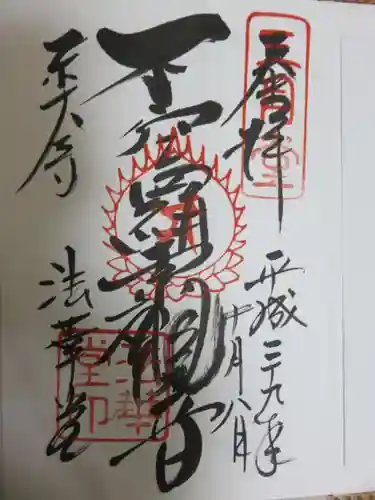 奉拝
三月堂
平成二十九年
十月八日
不空羂索観音
東大寺
法華堂
法華堂印